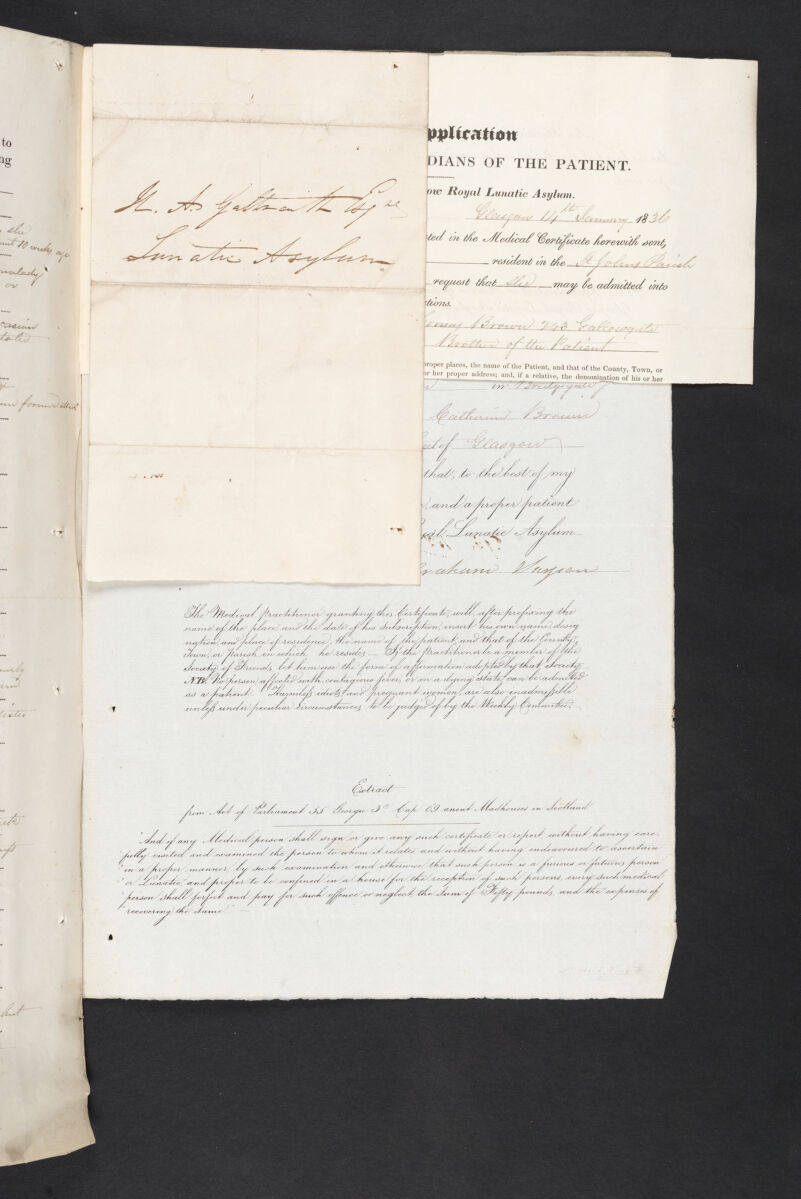 to
ng
she
about 10 weeks ago
malady
or
casion
state
N. A. Galbraith Esqre
Lunatic Asylum
pplication
DIANS OF THE PATIENT.
ow Royal Lunatic Asylum.
Glasgow 14th January 1836
ted in the Medical Certificate herewith sent,
resident in the St Johns Parish
request that She may be admitted into
tions.
omas Brown 243 Gallowgate
Brother of the Patient
proper places, the name of the Patient, and that of the County, Town, or
or her proper address; and, if a relative, the denomination of his or her
in Bridgegate
Catherine Brown
of Glasgow
that, to the best of my
and a proper patient
yal Lunatic Asylum
raham
The Medical practitioner granting this Certificate, will, after prefixing the
name of the place, and the date of his subscription, insert his own name, desig
nation, and place of residence, the name of the patient, and that of the County,
Town, or parish in which he resides. If the practitioner be a member of the
Society of Friends, let him use the form of affirmation adopted by that Society.
NB. No person affected with contagious fever, or in a dying state, can be admitted
as a patient. Harmless idiots and pregnant women are also inadmissible
unless under peculiar circumstances to be judged of by the Weekly Committee.
Extract
from Act of Parliament 55 George 3d Cap 69 anent Madhouses in Scotland
"And if any Medical person shall sign or give any such certificate or report, without having care-
"fully visited and examined the person to whom it relates and without having endeavoured to ascertain
"in a proper manner by such examination and otherwise, that such person is a furious or fatuous person
"or Lunatic, and proper to be confined in a house for the reception of such persons, every such medical
"person shall forfeit and pay for such offence or neglect, the sum of Fifty pounds, and the expenses of
"recovering the same."